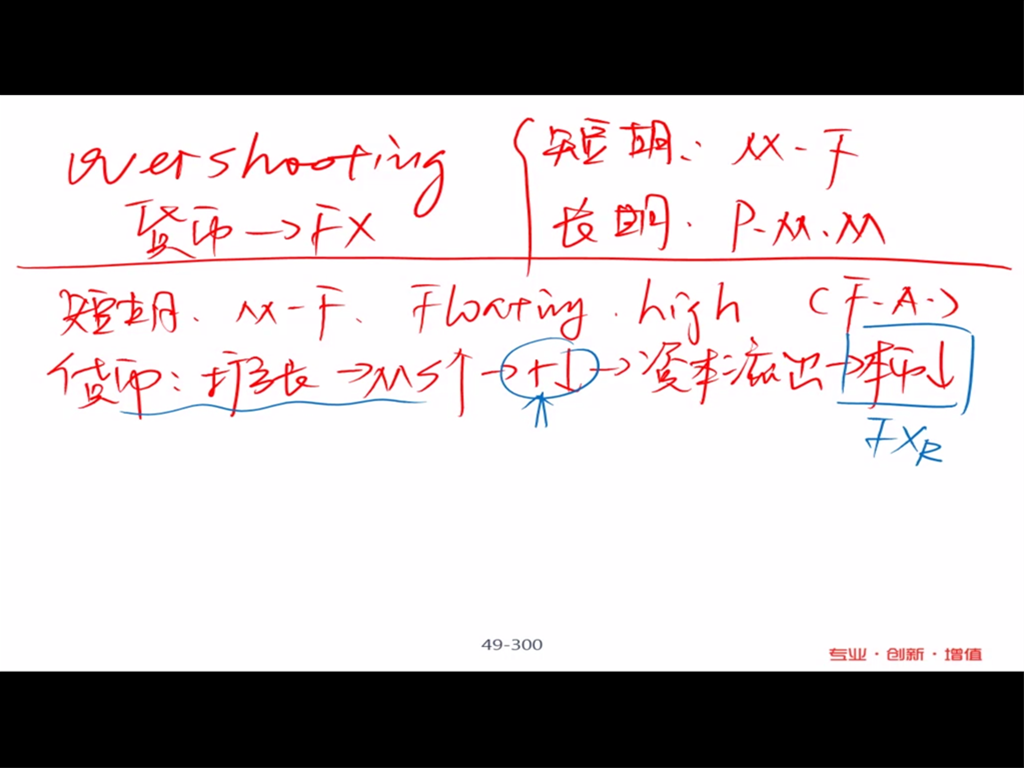 overshooting
货币→FX
短期: M-F
长期. P.M.M
短期. M-F. Floating. high (F.A.)
货币: 扩张→MS↑→r↓→资本流出→本币↓
FXR
49-300
专业·创新·增值